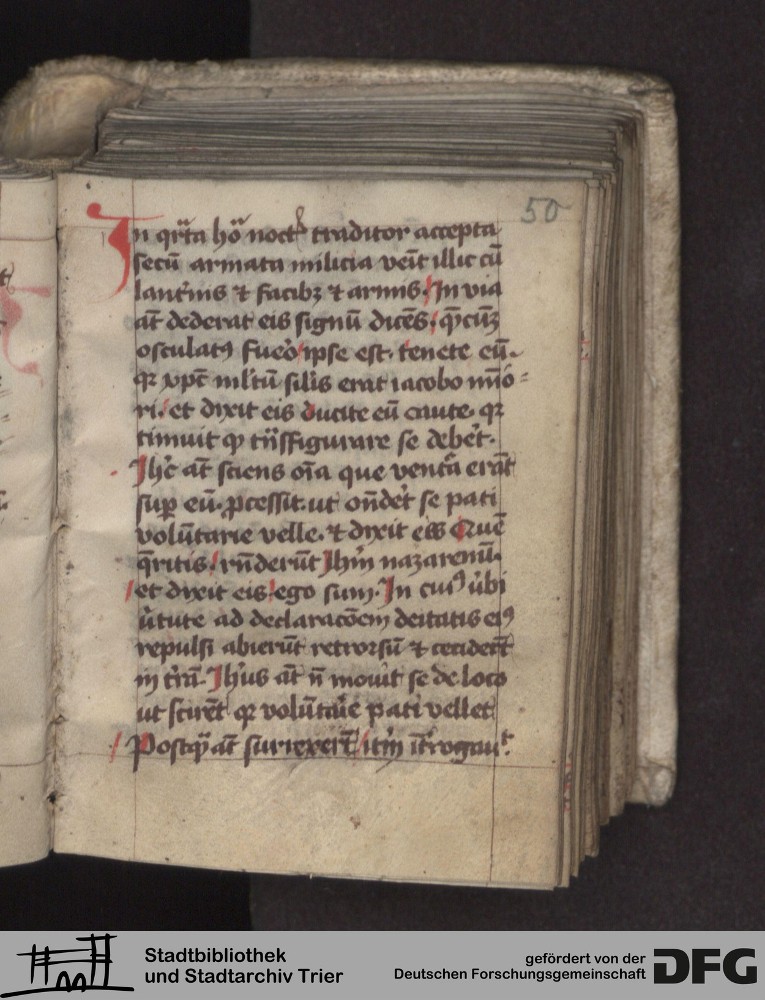 50
In qr̄ta hō noct̄ traditor accepta
secū armata milicia venīt illic cū
lant̄nis ⁊ facibꝫ ⁊ armis. In via
aūt dederat eis signū dicēs. qēcūqꝫ
osculatꝰ fueō ipse est. tenete eū.
qꝛ xpc̄ ml̄tū sil̄is erat iacobo mīo-
ri. et dixit eis ducite eū caute. qꝛ
timuit ꝙ tn̄sfigurare se deb̄et.
Ihc̄ aūt sciens oīa que vent̄a erāt
suꝑ eū. ꝓcessit. ut on̄det se pati
volūtarie velle. ⁊ dixit eis Quē
q̄ritis. rn̄derūt Ihm̄ nazarenū.
et dixit eis. ego sum. In cuiꝰ ūbi
ūtute ad declaracōem deitatis eiꝰ
repulsi abierūt retrorsū ⁊ cecider̄t
in t̄rā. Ihus aūt n̄ mouit se de loco
ut scirēt qꝛ volūtar̄ie pati vellet.
Postq̄ aūt surrexer̄t it̄m īt̄rogauit.
Stadtbibliothek
und Stadtarchiv Trier
gefördert von der
Deutschen Forschungsgemeinschaft
DFG